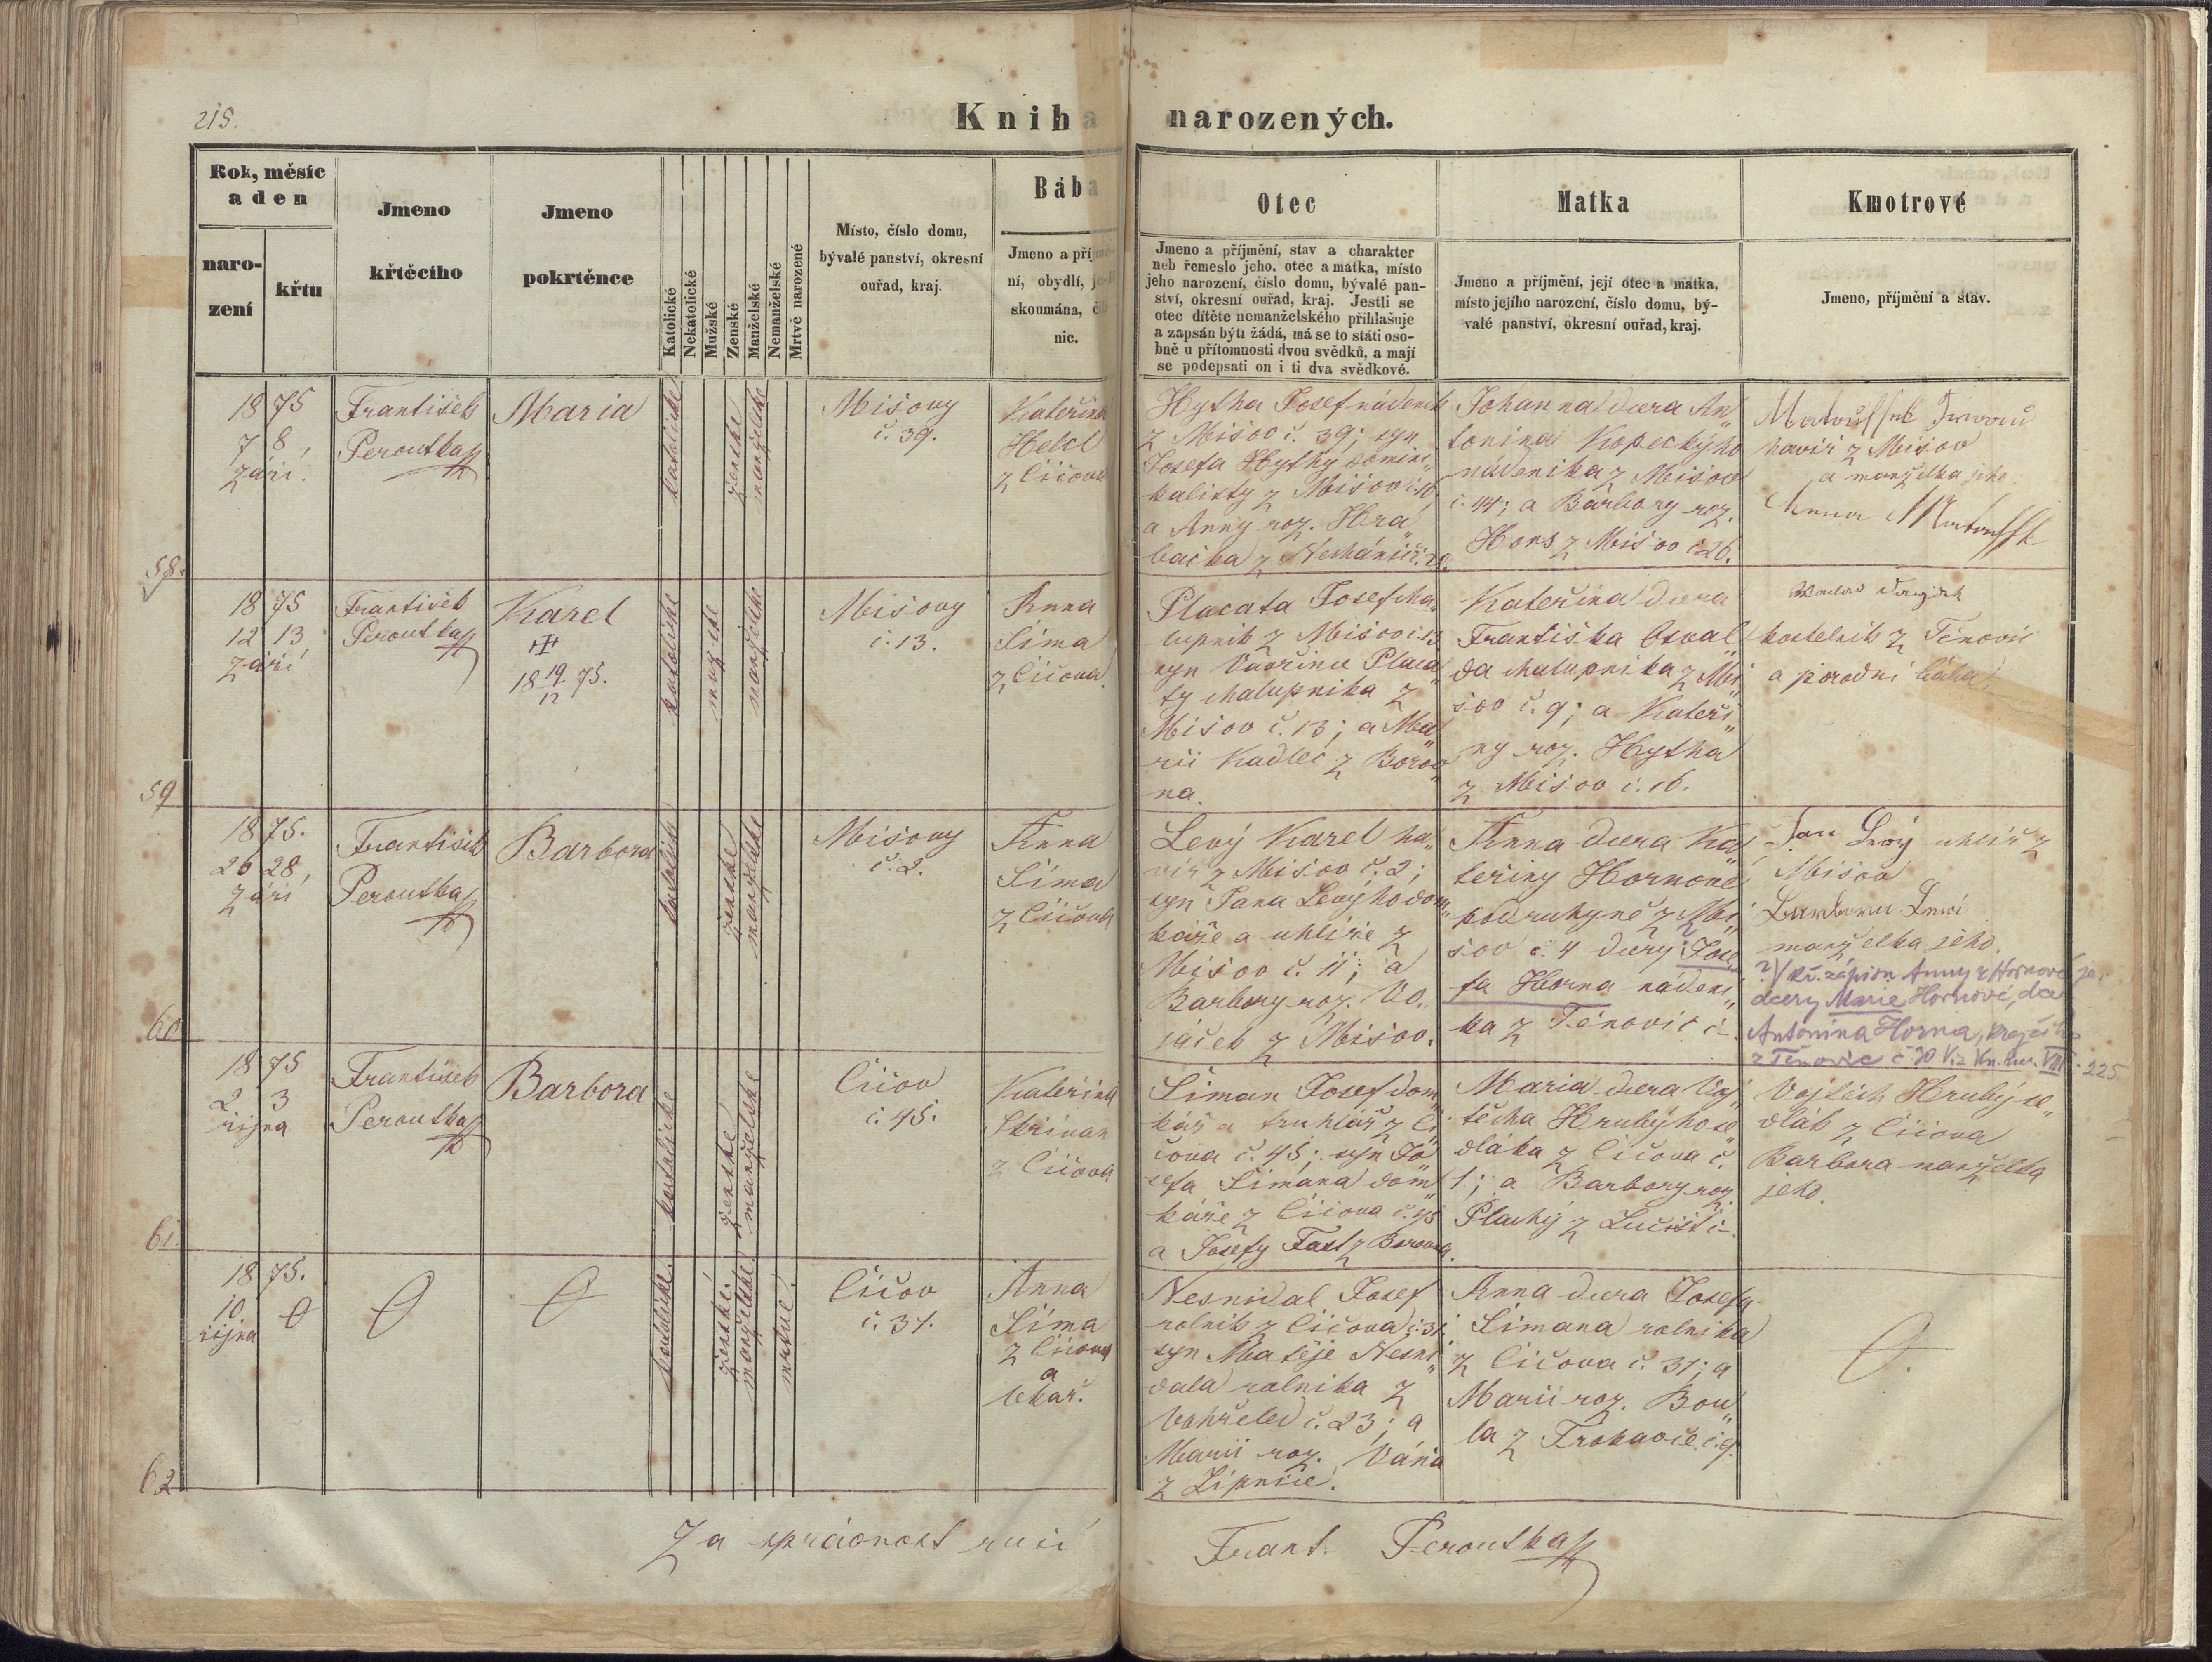 215.
Kniha narozených.
Rok, měsíc
a den
naro-
zení
křtu
Jmeno
křtěcího
Jmeno
pokrtěnce
Katolické
Nekatolické
Mužské
Ženské
Manželské
Nemanželské
Mrtvě narozené
Místo, číslo domu,
bývalé panství, okresní
ouřad, kraj.
Bába
Jmeno a příjmě-
ní, obydlí, je-li
skoumána, či
nic.
Otec
Jmeno a příjmění, stav a charakter
neb řemeslo jeho, otec a matka, místo
jeho narození, číslo domu, bývalé pan-
ství, okresní ouřad, kraj. Jestli se
otec dítěte nemanželského přihlašuje
a zapsán býti žádá, má se to státi oso-
bně u přítomnosti dvou svědků, a mají
se podepsati on i ti dva svědkové.
Matka
Jmeno a příjmění, její otec a matka,
místo jejího narození, číslo domu, bý-
valé panství, okresní ouřad, kraj.
Kmotrové
Jmeno, příjmění a stav.
58.
1875
7 8
září
František
Peroutka
Maria
katolické
ženské
manželské
Mišovy
č. 39.
Kateřina
Helcl
z Čičova
Hytha Josef nádeník
z Mišov č. 39; syn
Josefa Hythy domini„
kalisty z Mišov
a Anny roz. Hra„
bačka z
Johanna dcera An„
tonina Kopeckýho
nádenika z Mišov
č. 44; a Barbory roz.
Hons z Mišov č 26.
havíř z Mišov
a manželka jeho
Anna
59
1875
12 13
září
František
Peroutka
Karel
18 19/12 75.
katolické
mužské
manželské
Mišovy
č. 13.
Anna
Šíma
z Čičova
Placata Josef cha„
lupník z Mišov č. 13
syn Vavřince Placa„
ty chalupníka z
Mišov č. 13; a Ma„
rii Kadlec z Borov„
na.
Kateřina dcera
Františka Osval„
da chalupníka z Mi„
šov č. 9; a Kateři„
ny roz. Hytha
z Mišov č. 16.
kostelník z Těnovic
a porodní bába
60
1875.
26 28,
září
František
Peroutka
Barbora
katolické
ženské
manželské
Mišovy
č. 2.
Anna
Šíma
z Čičova
Levý Karel ha„
víř z Mišov č. 2;
syn Jana Levýho dom„
káře a uhlíře z
Mišov č. 11; a
Barbory roz. Vo„
jáček z Mišov.
Anna dcera Ka„
teřiny Hornové
podruhyně z Mi„
šov č 4 dcery Jose„
fa Horna nádeni„
ka z Těnovic č -
Jan Levý uhlíř z
Mišova
Barbora Lewi
manželka jeho.
?/ zápisu Anny z Hornové je
dcery Marie Hornové, dce
Antonína Horna,
z Těnovic č 30 Viz Kn. nar. VIII · 225
61.
1875
2 3
října
František
Peroutka
Barbora
katolické
ženské
manželské
Čičov
č. 45.
Kateřina
Skřivan
z Čičova
Šiman Josef dom„
kář a truhlář z Či„
čova č. 45; syn Jo„
sefa Šimana dom„
káře z Čičova č. 45
a Josefy Fast z Borovna.
Maria dcera Voj„
těcha Hrubýho se„
dláka z Čičova č.
1; a Barbory roz.
Plachý z Lučiště
Vojtěch Hrubý se„
dlák z Čičova
Barbara manželka
jeho.
62
1875.
10
října
katolické.
ženské.
manželské
mrtvé.
Čičov
č. 31.
Anna
Šíma
z Čičova
a
lékař.
Nesnidal Josef
rolník z Čičova č. 31
syn Matěje Nesni„
dala rolníka z
č. 23; a
Marii roz. Váňa
z Lipnice.
Anna dcera Josefa
Šimana rolníka
z Čičova č. 31; a
Marii roz. Bou„
la z Trokavce č. 9.
Za správnost ručí Frant. Peroutka